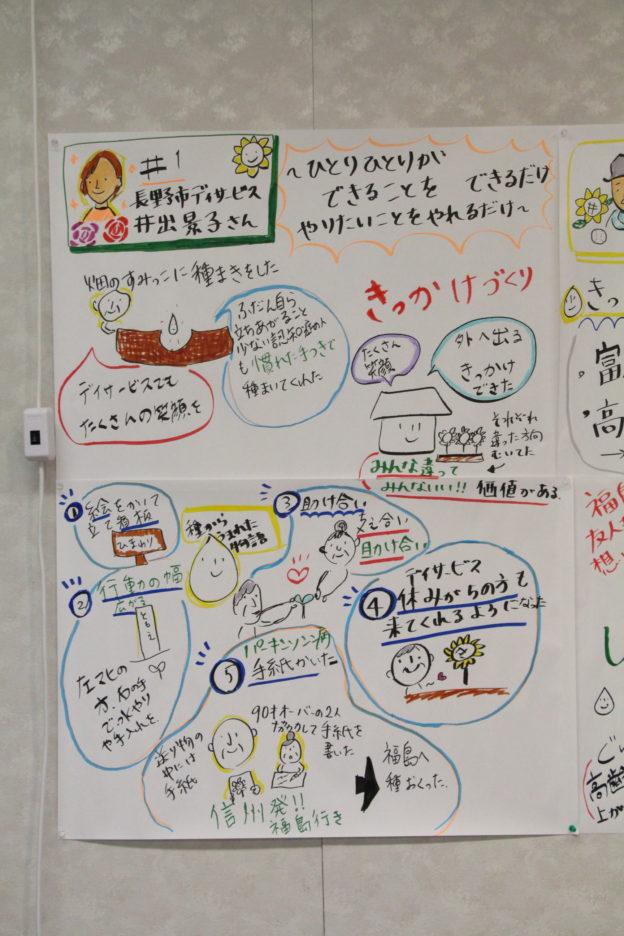 #1
長野市デイサービス
井出景子さん
～ひとりひとりが
できることを できるだけ
やりたいことをやれるだけ～
畑のすみっこに種まきをした
ふだん自ら
立ちあがること
少ない認知症の人
も慣れた手つきで
種まいてくれた
デイサービスでも
たくさんの笑顔を
きっかけづくり
たくさん
笑顔
外へ出る
きっかけ
できた
それぞれ
違った方向
むいてた
みんな違って
みんないい!! 価値がある
①
絵をかいて
立て看板
ひまわり
種から
うまれた
物語
③ 助け合い
支え合い
助け合い
② 行動の幅
広がる
左マヒの
方、右の手
で水やり
や手入れを
④
デイサービス
休みがちの方で
来てくれるようになった
⑤
パーキンソン病
手紙がいた
90才オーバーの2人
手紙を
書いた
送り物の
中には
手紙
福島へ
種おくった
信州発!!
福島行き
きっ
富
高
→
福島
友人
想い
し
高齢
上が